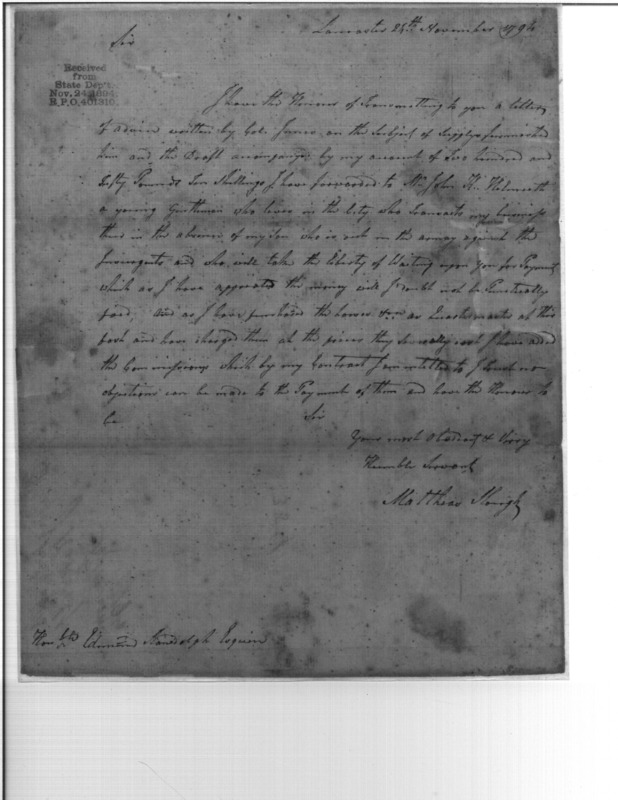 Lancaster 24th November 1794
Sir
Received
from
State Dep't.
Nov. 24, 1894.
R.P.O. 401310.
I have the Honour of Transmitting to you a letter
of advice written by Col. on the Subject of Supplys furnished
him and the Draft accompanyg by my account of Two hundred and
Fifty Pounds Ten Shillings I have forwarded to Mr John
a young Gentleman who lives in the City who Transacts my business
there in the absence of my son who is out in the army against the
Insurgents and who will take the liberty of Waiting upon you for Payment
which as I have the money will I doubt not be Punctually
paid, and as I have purchased the horses &c as Quartermaster at this
post and have charged them at the prices they Severally cost I have added
the Commissions which by my Contract I am intitled to I trust no
objections can be made to the Payment of them and have the Honour to
be Sir
Your most Obedient & Verry
Humble Servant
Matthias Slough
Honble Edmund Randolph Esquire